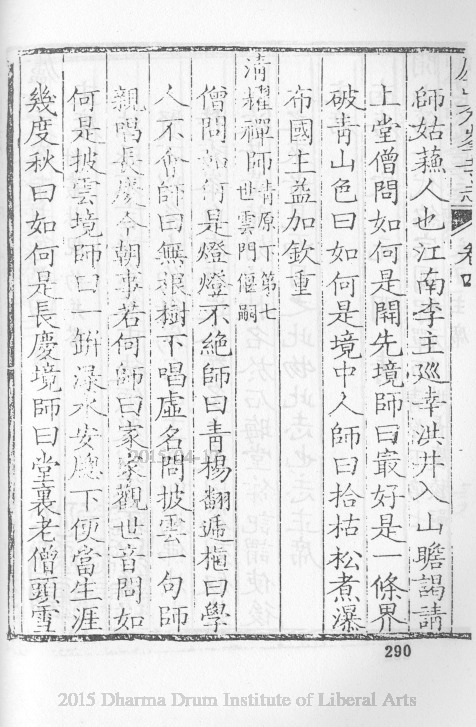 師姑蘓人也江南李主廵幸洪井入山瞻謁請
上堂僧問如何是開先境師曰最好是一條界
破青山色曰如何是境中人師曰拾枯松煮瀑
布國主益加欽重
清耀禪師青原下第七世雲門偃嗣
僧問如何是燈燈不絶師曰青楊翻遞植曰學
人不會師曰無根樹下唱虛名問披雲一句師
親唱長慶今朝事若何師曰家家觀世音問如
何是披雲境師曰一缾渌水安牕下便當生涯
幾度秋曰如何是長慶境師曰堂裏老僧頭雪
卷四
290
2015 Dharma Drum Institute of Liberal Arts